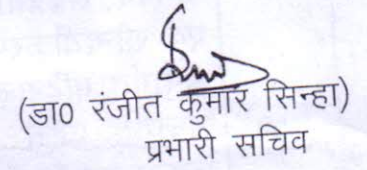 (डा0 रंजीत कुमार सिन्हा)
प्रभारी सचिव